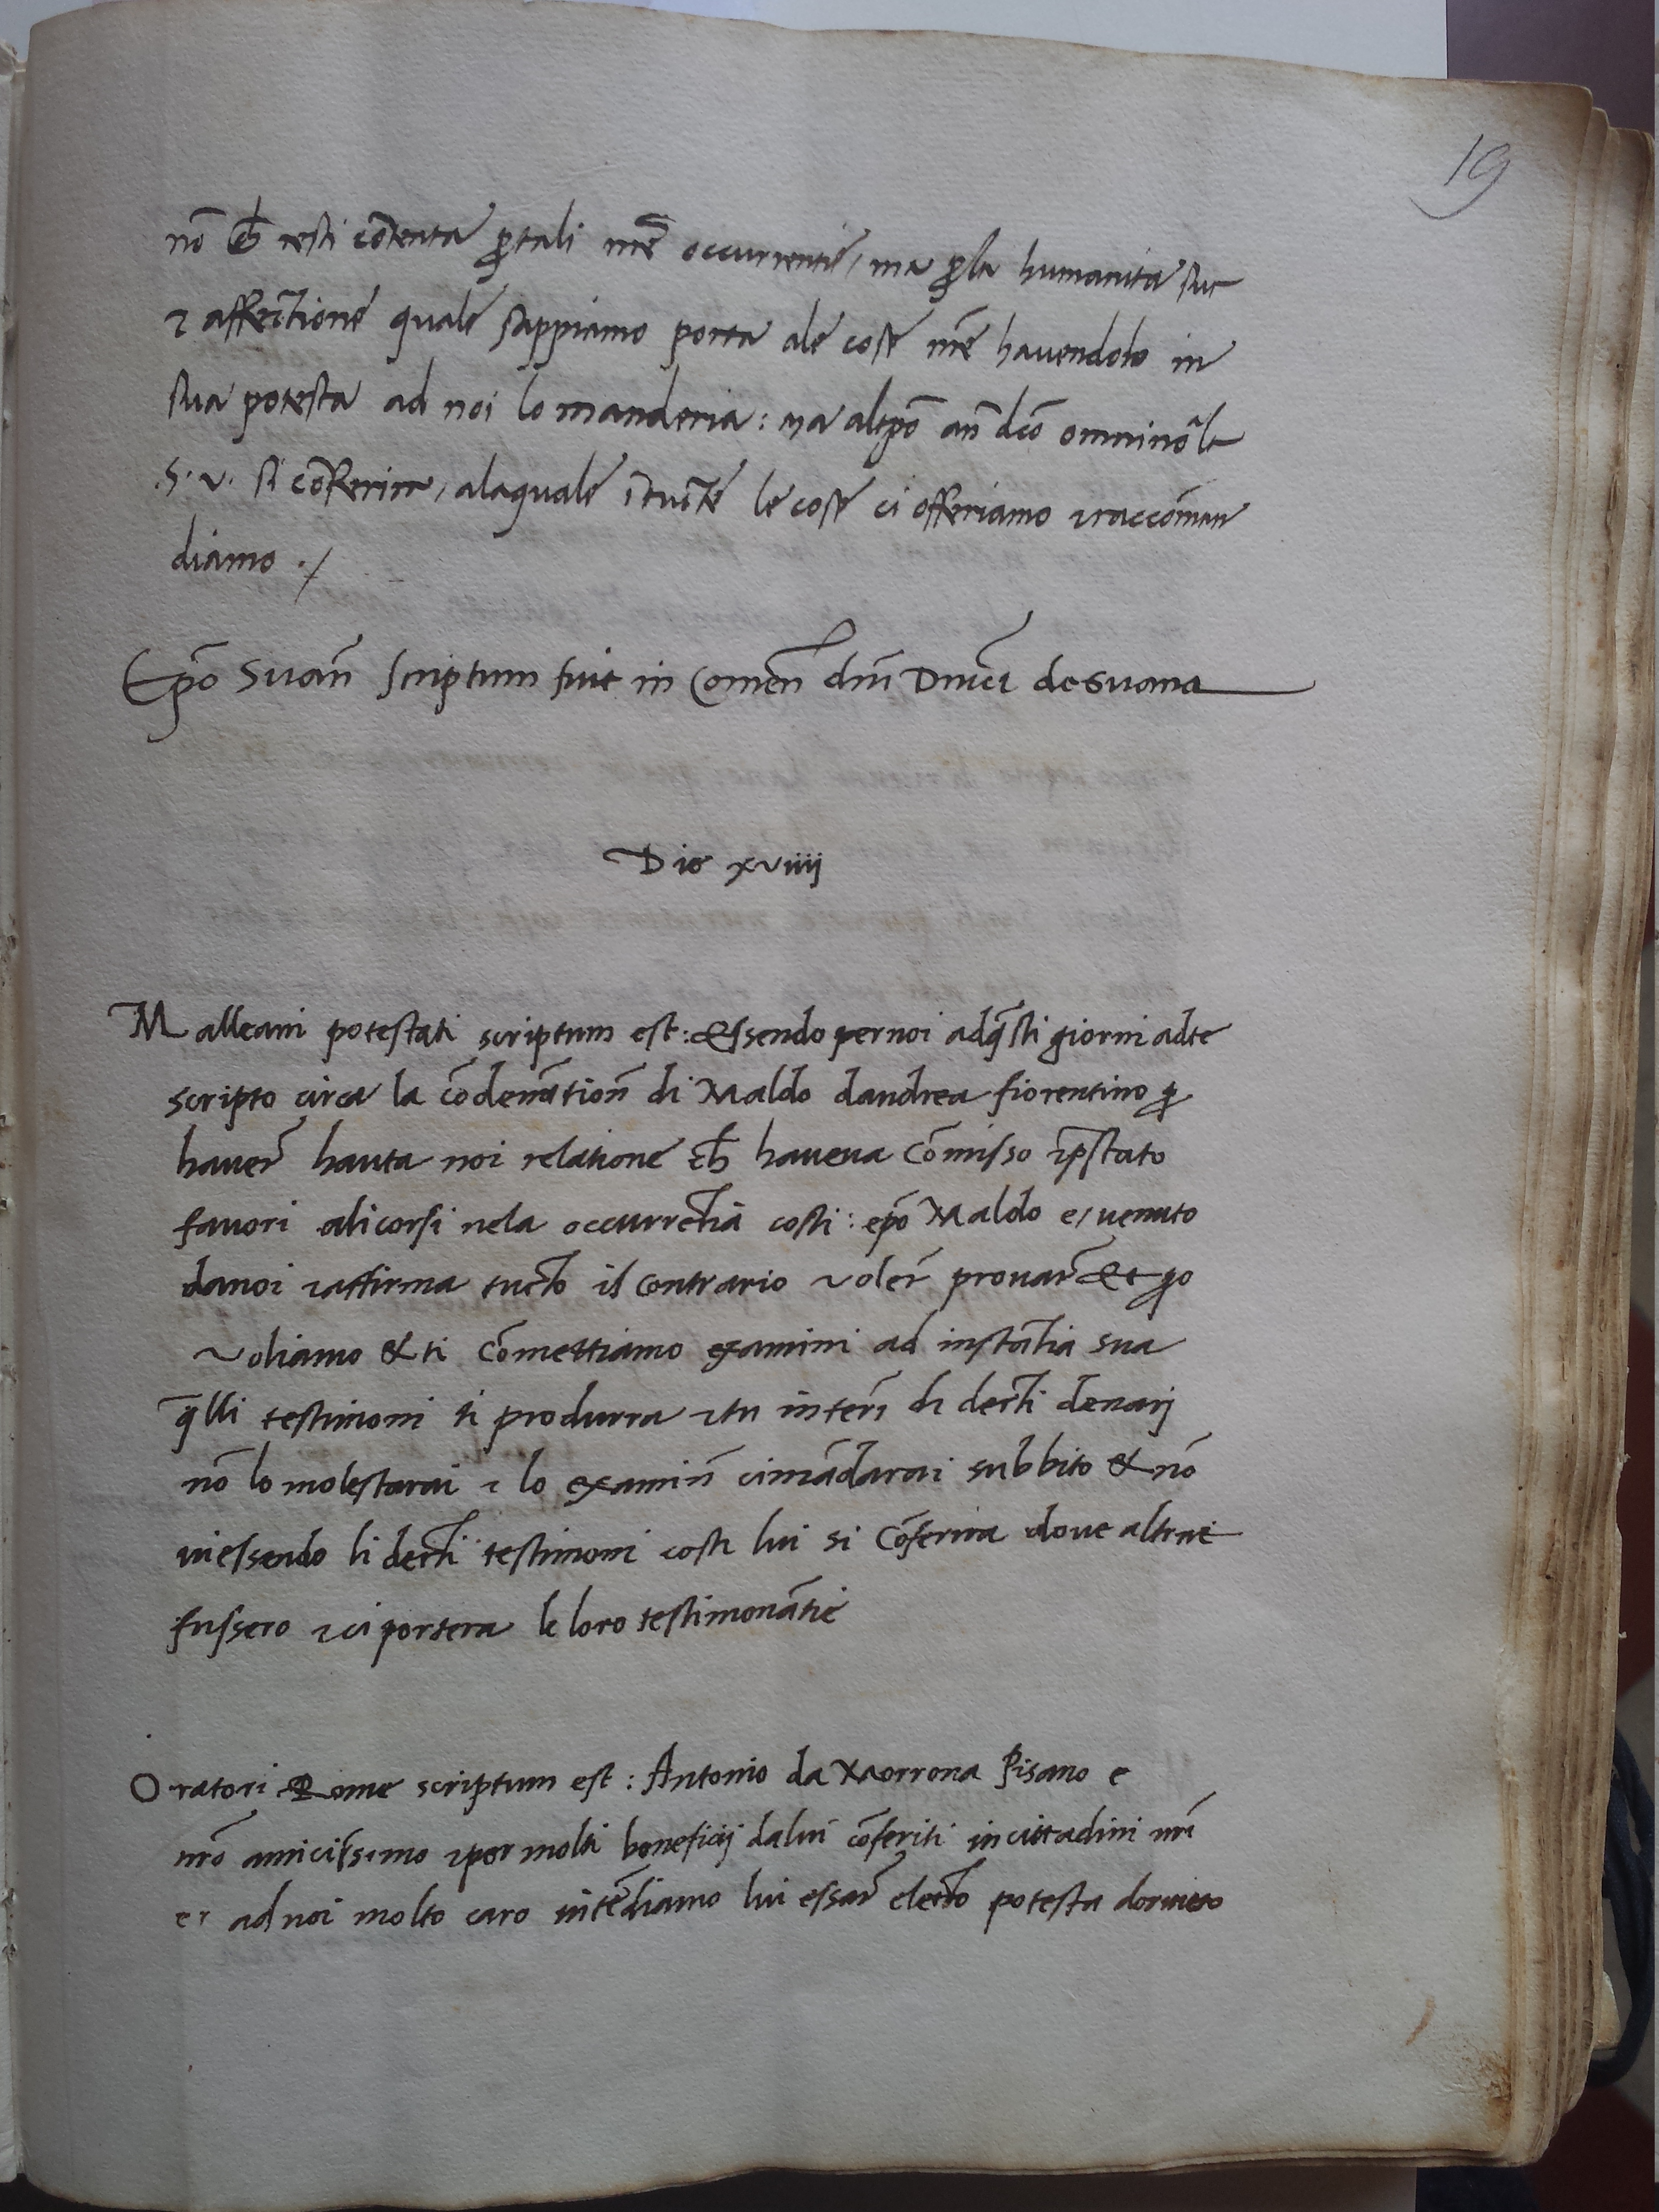 19
nō ch̄ resti cōtenta ꝑ tali nr̄e occurrentie / ma ꝑ la humanita sua
⁊ affectione quale sappiamo porta ale cose nr̄e havendolo in
sua potesta ad noi lo manderia: ma
.S. V. si cōferira, alaquale ī tucte le cose ci offeriamo ⁊ raccōman
diamo ./
Ep̄o Suan̄ scriptum fuit in Comen̄ dn̄i de Suana
Die xviiij
Malleani potestati scriptum est: Essendo per noi ad q̄sti giorni ad te
scripto circa la cōdenātion̄ di Maldo dandrea fiorentino ꝑ
haver̄ hauta noi relatione ch̄ haveva Cōmisso ⁊ p̄stato
favori ali corsi nela occurrētia costi: ep̄o Maldo e / venuto
da noi ⁊ affirma tucto il contrario ⁊ voler̄ provar̄ Et ꝑo
voliamo & ti Cōmettiamo examini ad instātia sua
q̄lli testimoni ti produrra ⁊ tu interī di decti denarj
nō lo molestarai ⁊ lo examin̄ ci mādarai subbito & nō
vi essendo li decti testimoni costi lui si Cōferira dove altrove
fussero ⁊ ci portera le loro testimonātie
Oratori Rome scriptum est: Antonio da Morrona Pisano e
nr̄o amicissimo ⁊ per molti beneficij da lui cōferiti in cittadini nr̄i
er ad noi molto caro intēdiamo lui essar̄ electo potesta dorvieto